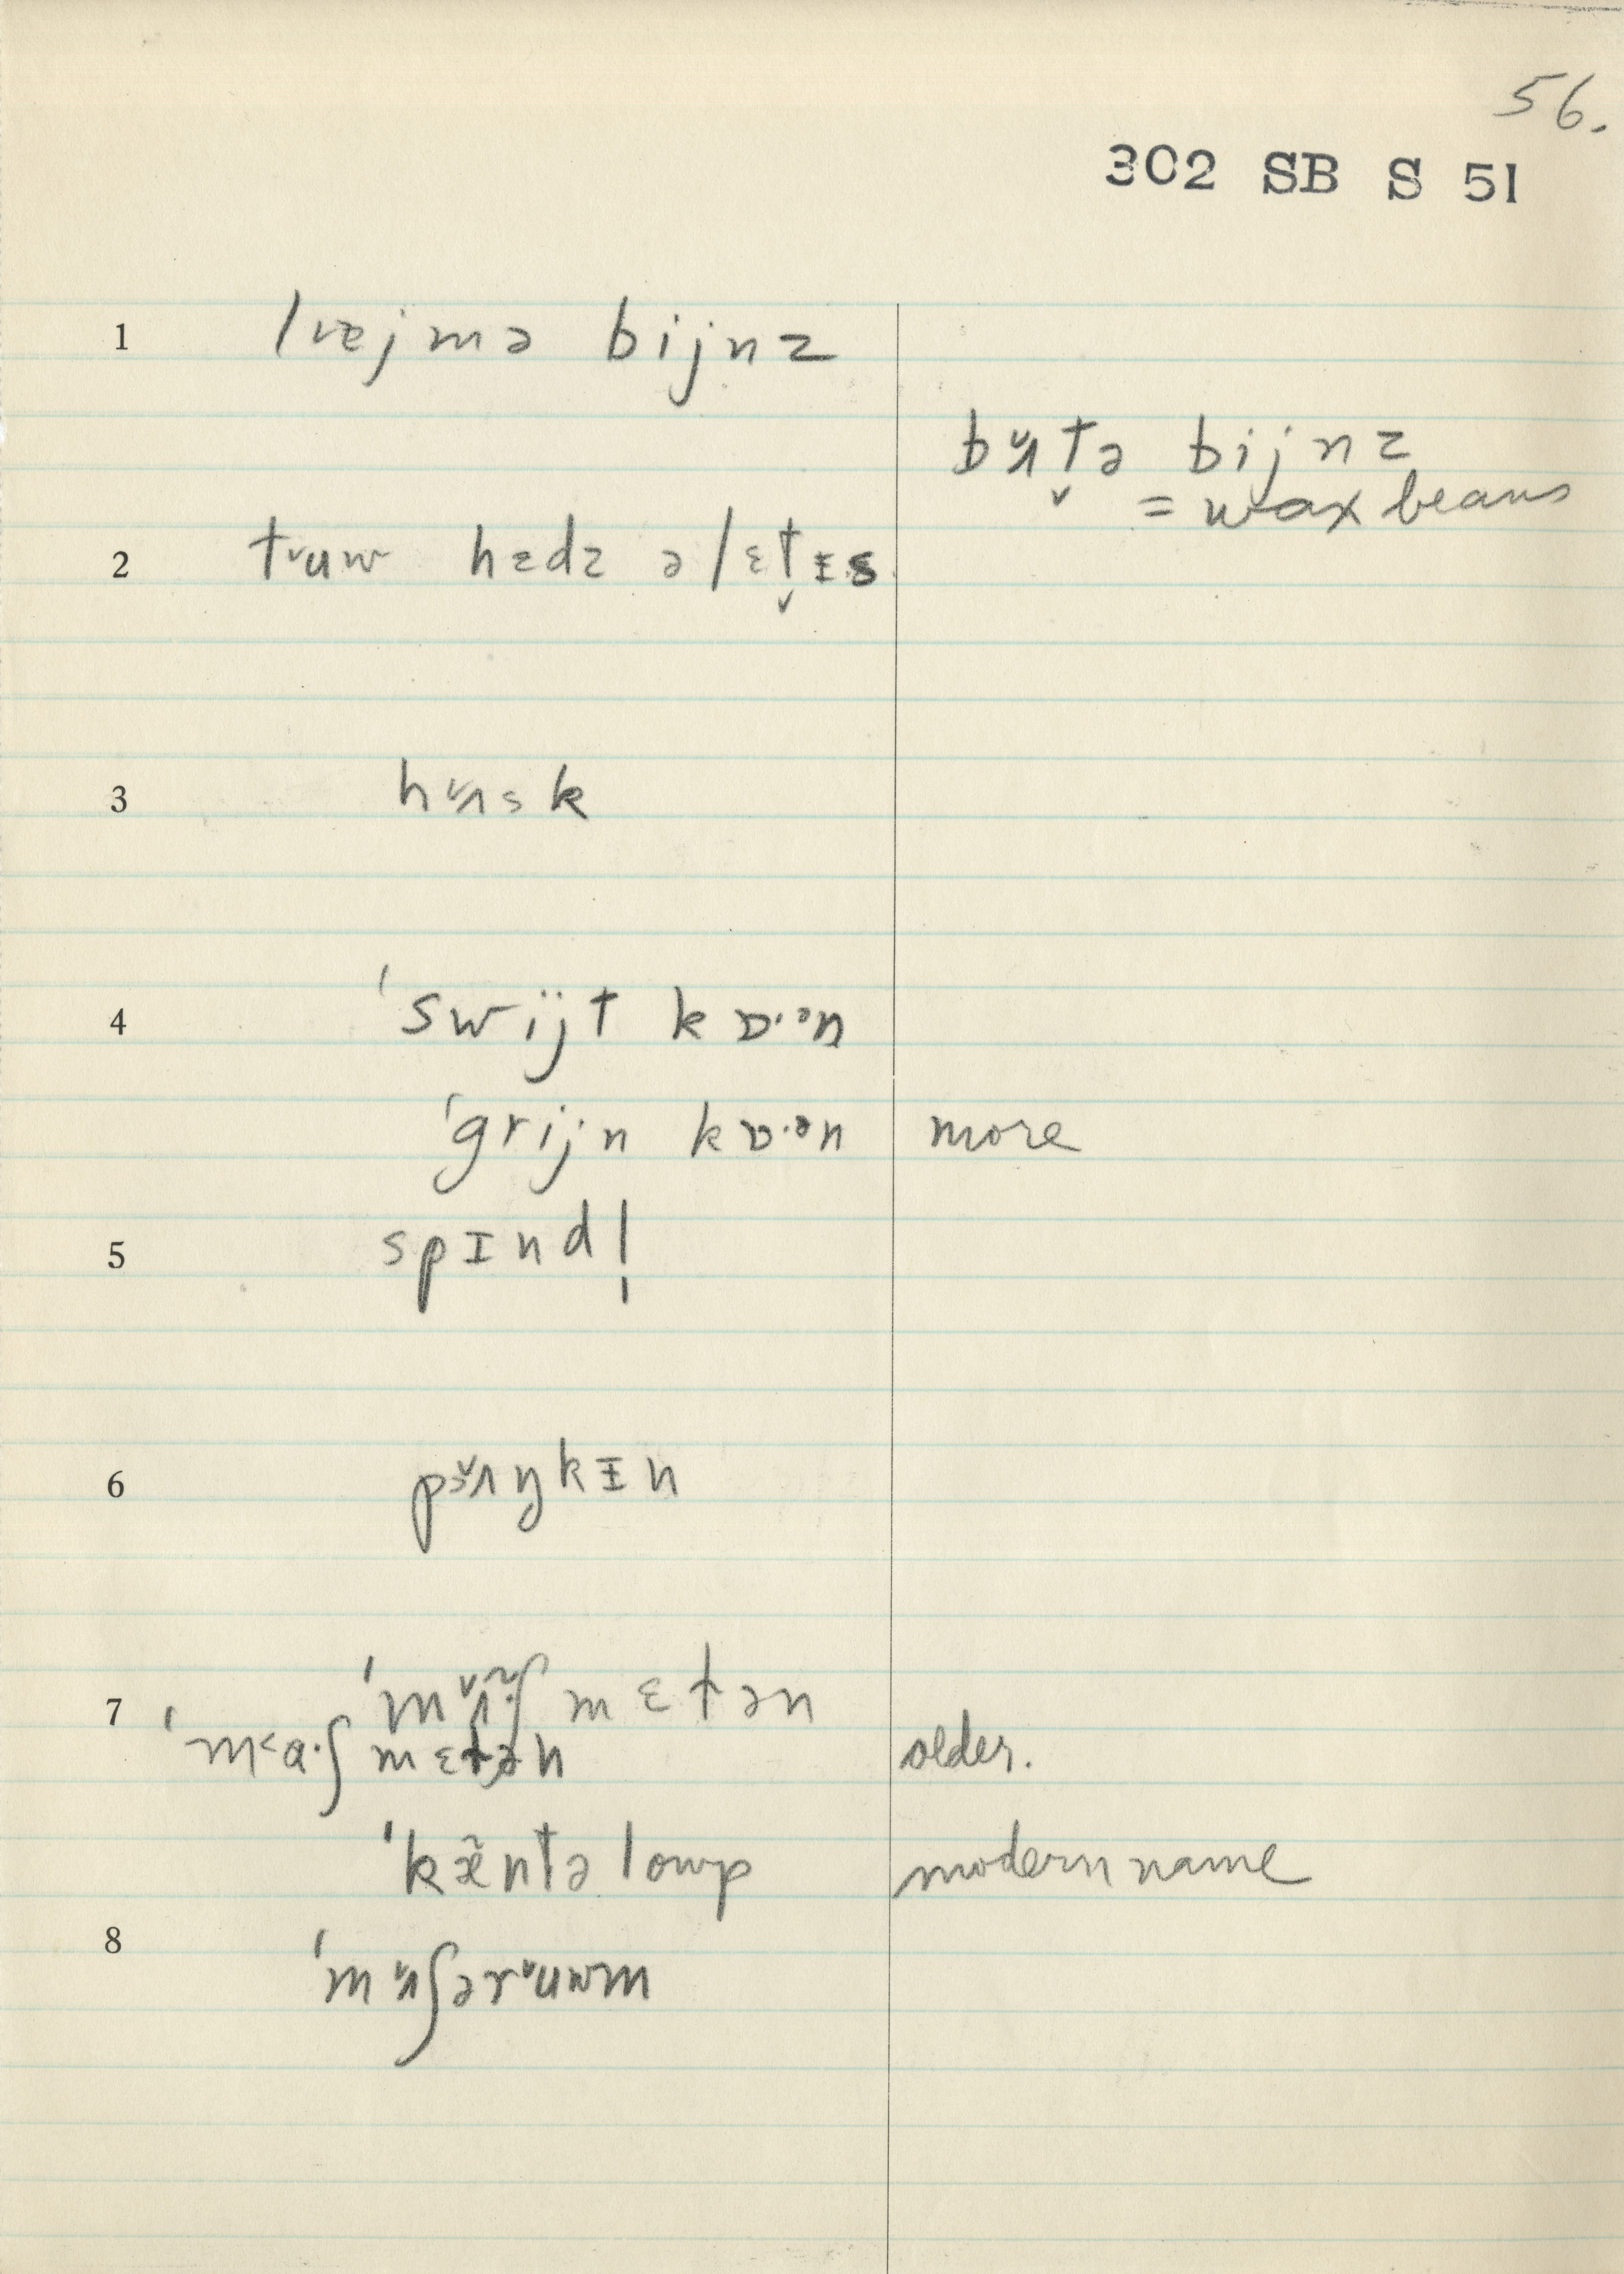 56.
302 SB S 51
1 lvejmə bijnz
bʌ̌t̬ə bijnz
= wax beans
2 tᵛuw hɛdz ə lɛt̬ᵻs
3 hʌ̌sk
4 'swijt kɒ·ᵊn
'grijn kɒ·ᵊn more
5 spɪndl̩
6 pʌ̌ŋkᵻn
7 'mʌ̌̃·ʃ mɛtən
'm˂a·ʃ mɛtən older.
'kæ̃ntəlowp modern name
8 'mʌ̌ʃərᵛuwm